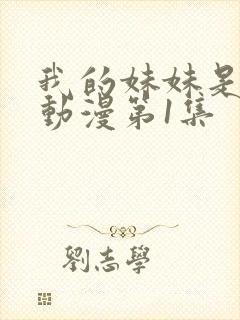 我的妹妹是
動漫第1集
劉志學